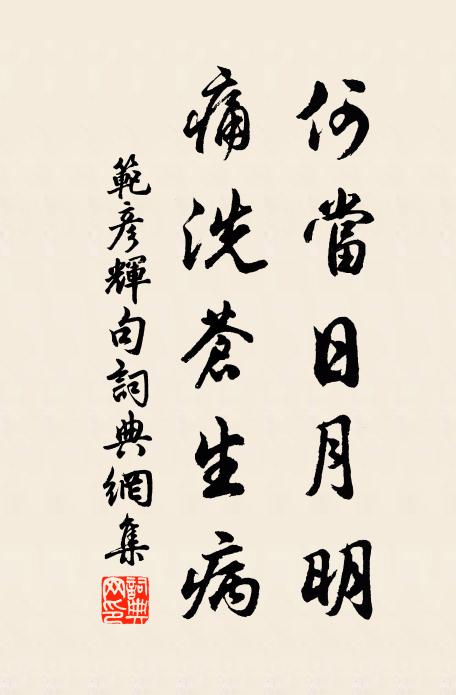 何當日月明
痛洗蒼生病
範彥輝句詞典網集
詞典
网印